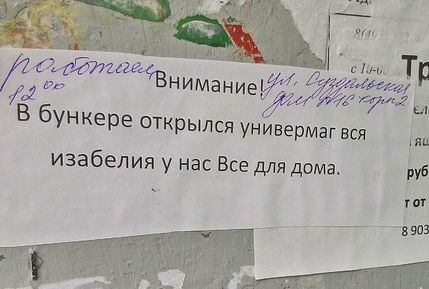 работаем
12 00
Внимание!
ул. Суздальская
дом №16 корп 2
В бункере открылся универмаг вся
изабелия у нас Все для дома.
с 10-00
Тр
руб
т от
8 903